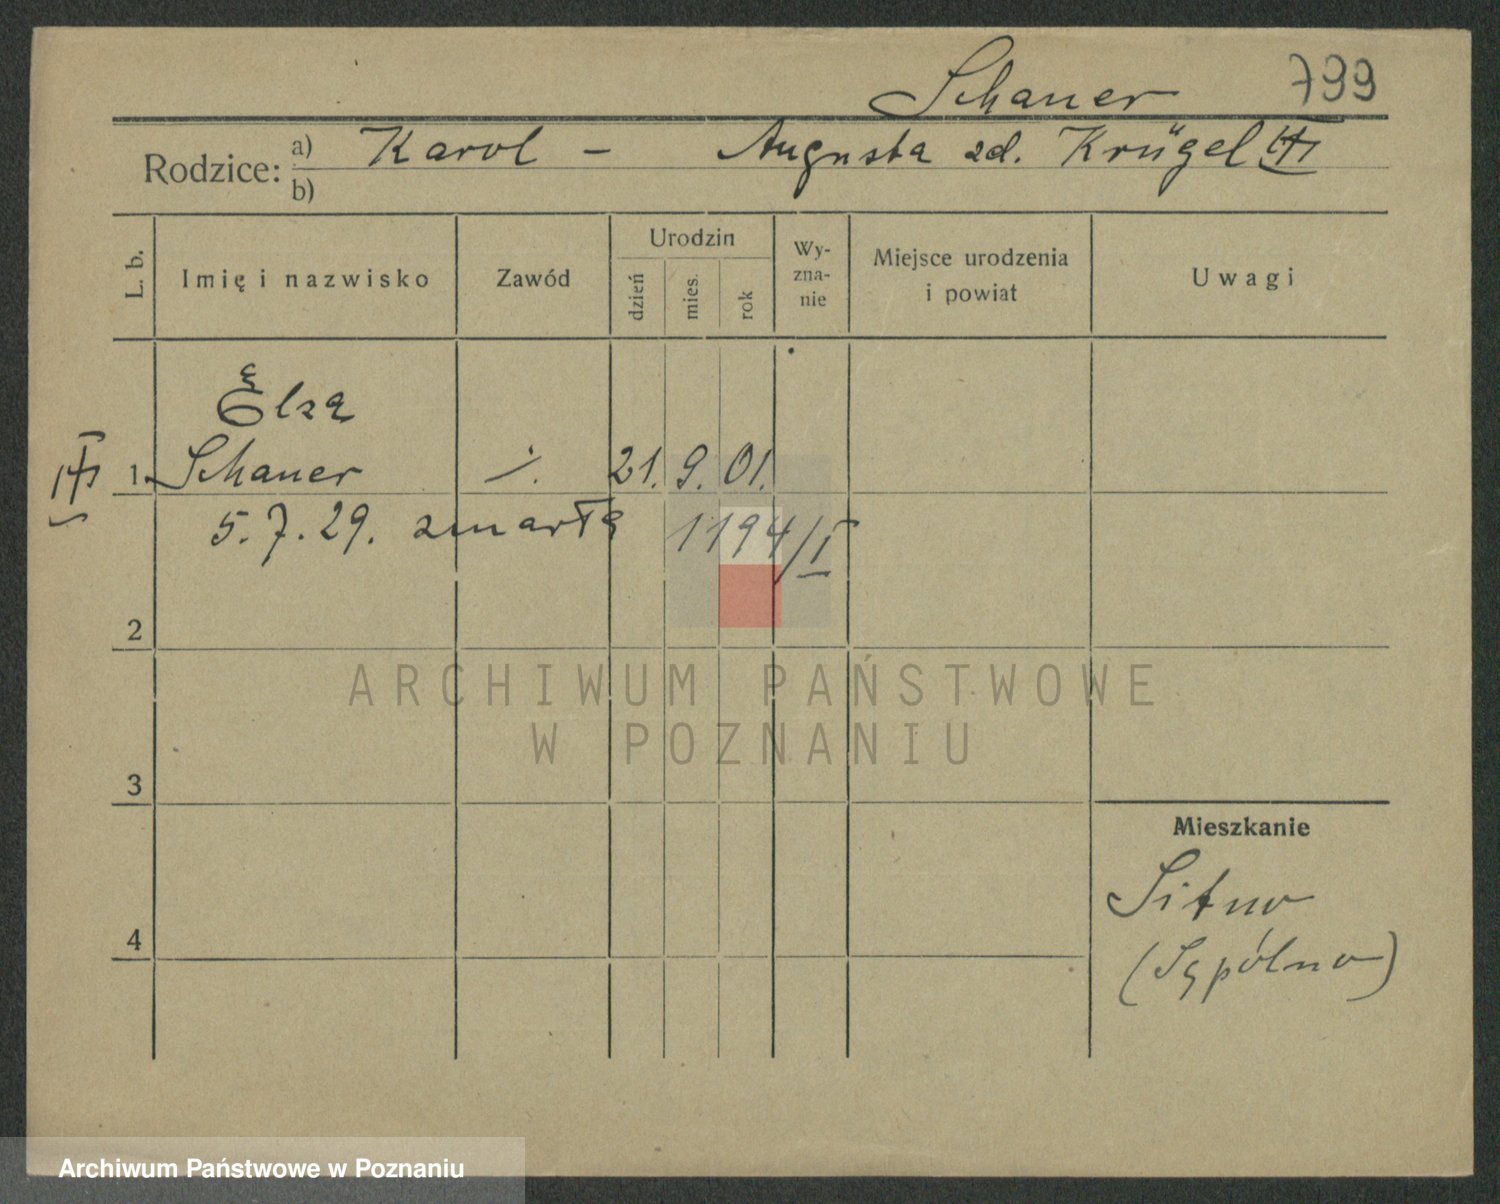 Schauer 799
Rodzice: a) Karol - Augusta zd. Krügel
b)
L. b. Imię i nazwisko Zawód Urodzin dzień mies. rok Wy-zna-nie Miejsce urodzenia i powiat Uwagi
Elza
1. Schauer ./. 21. 9. 01.
5. 7. 29. zmarła 1194/I
2
ARCHIWUM PAŃSTWOWE
W POZNANIU
3
Mieszkanie
Sitno
4
(Sępólno)
Archiwum Państwowe w Poznaniu